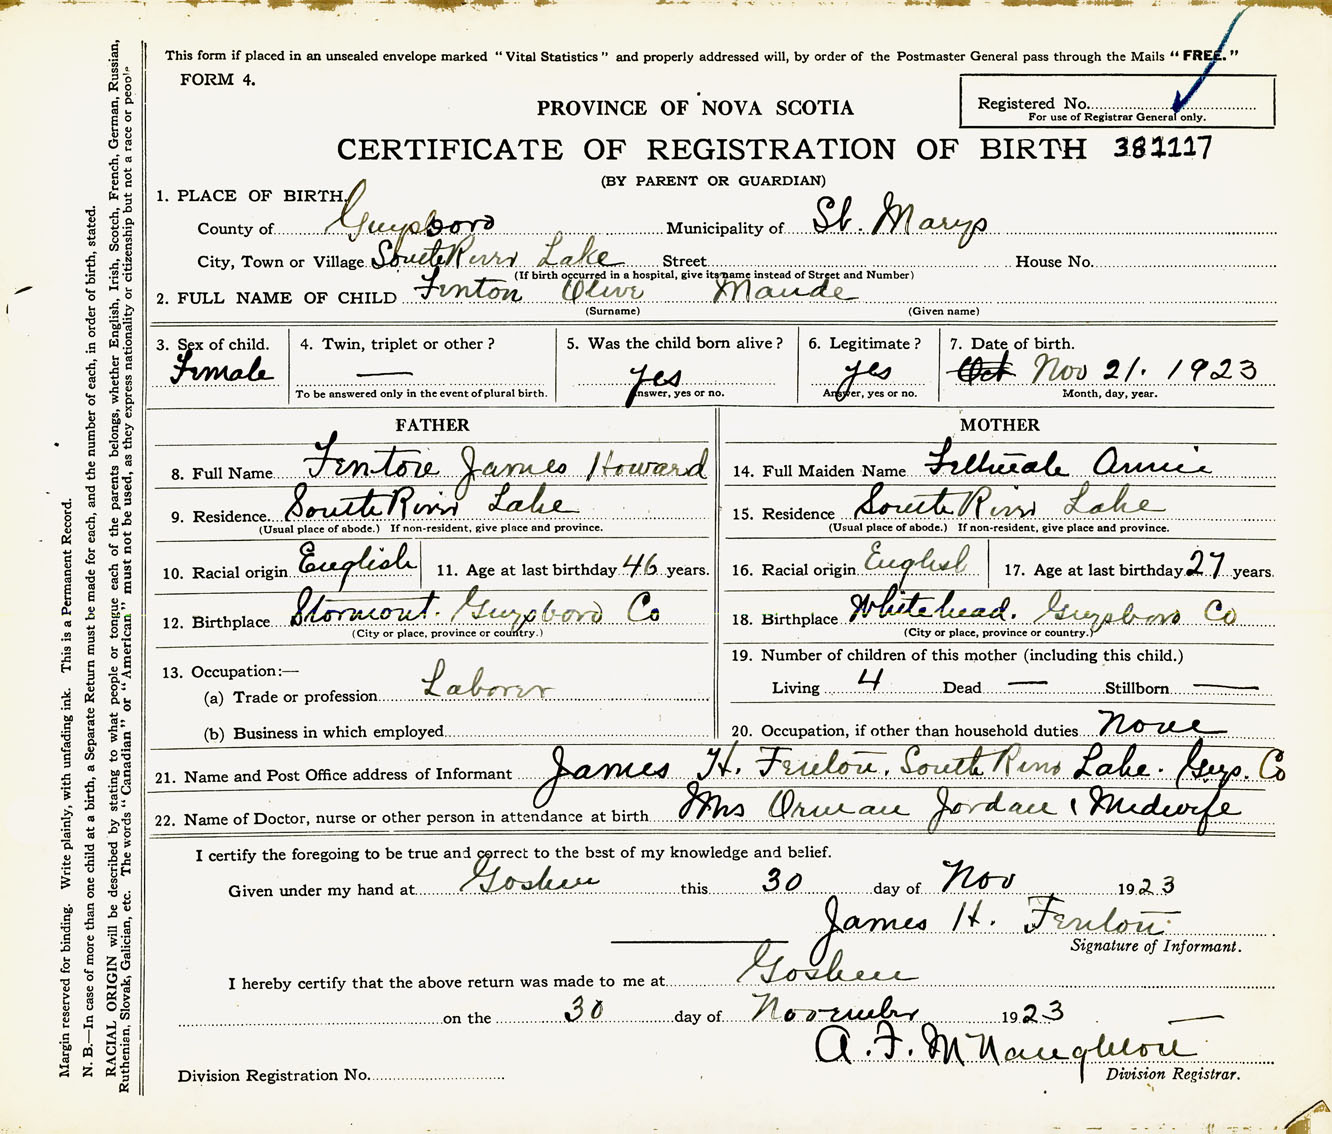 This form if placed in an unsealed envelope marked "Vital Statistics" and properly addressed will, by order of the Postmaster General pass through the Mails "FREE."
FORM 4.
PROVINCE OF NOVA SCOTIA
Registered No.
For use of Registrar General only.
CERTIFICATE OF REGISTRATION OF BIRTH 381117
(BY PARENT OR GUARDIAN)
1. PLACE OF BIRTH,
County of Guysboro Municipality of St. Marys
City, Town or Village South River Lake Street House No.
(If birth occurred in a hospital, give its name instead of Street and Number)
2. FULL NAME OF CHILD Fenton Olive Maude
(Surname) (Given name)
3. Sex of child. 4. Twin, triplet or other? 5. Was the child born alive? 6. Legitimate? 7. Date of birth.
Female — yes yes Oct Nov 21. 1923
To be answered only in the event of plural birth. Answer, yes or no. Answer, yes or no. Month, day, year.
FATHER
8. Full Name Fenton James Howard
9. Residence South River Lake
(Usual place of abode.) If non-resident, give place and province.
10. Racial origin English 11. Age at last birthday 46 years.
12. Birthplace Stormont. Guysboro Co
(City or place, province or country.)
13. Occupation:—
(a) Trade or profession Laborer
(b) Business in which employed
MOTHER
14. Full Maiden Name Annie
15. Residence South River Lake
(Usual place of abode.) If non-resident, give place and province.
16. Racial origin English 17. Age at last birthday 27 years.
18. Birthplace Whitehead. Guysboro Co
(City or place, province or country.)
19. Number of children of this mother (including this child.)
Living 4 Dead — Stillborn —
20. Occupation, if other than household duties None
21. Name and Post Office address of Informant James H. Fenton. South River Lake. Guys. Co
22. Name of Doctor, nurse or other person in attendance at birth Mrs Orman Jordan (Midwife
I certify the foregoing to be true and correct to the best of my knowledge and belief.
Given under my hand at Goshen this 30 day of Nov 1923
James H. Fenton
Signature of Informant.
I hereby certify that the above return was made to me at Goshen
on the 30 day of November 1923
A. F. McNaughton
Division Registration No. Division Registrar.
Margin reserved for binding. Write plainly, with unfading ink. This is a Permanent Record.
N. B.—In case of more than one child at a birth, a Separate Return must be made for each, and the number of each, in order of birth, stated.
RACIAL ORIGIN will be described by stating to what people or tongue each of the parents belongs, whether English, Irish, Scotch, French, German, Russian,
Ruthenian, Slovak, Galician, etc. The words "Canadian" or "American" must not be used, as they express nationality or citizenship but not a race or people